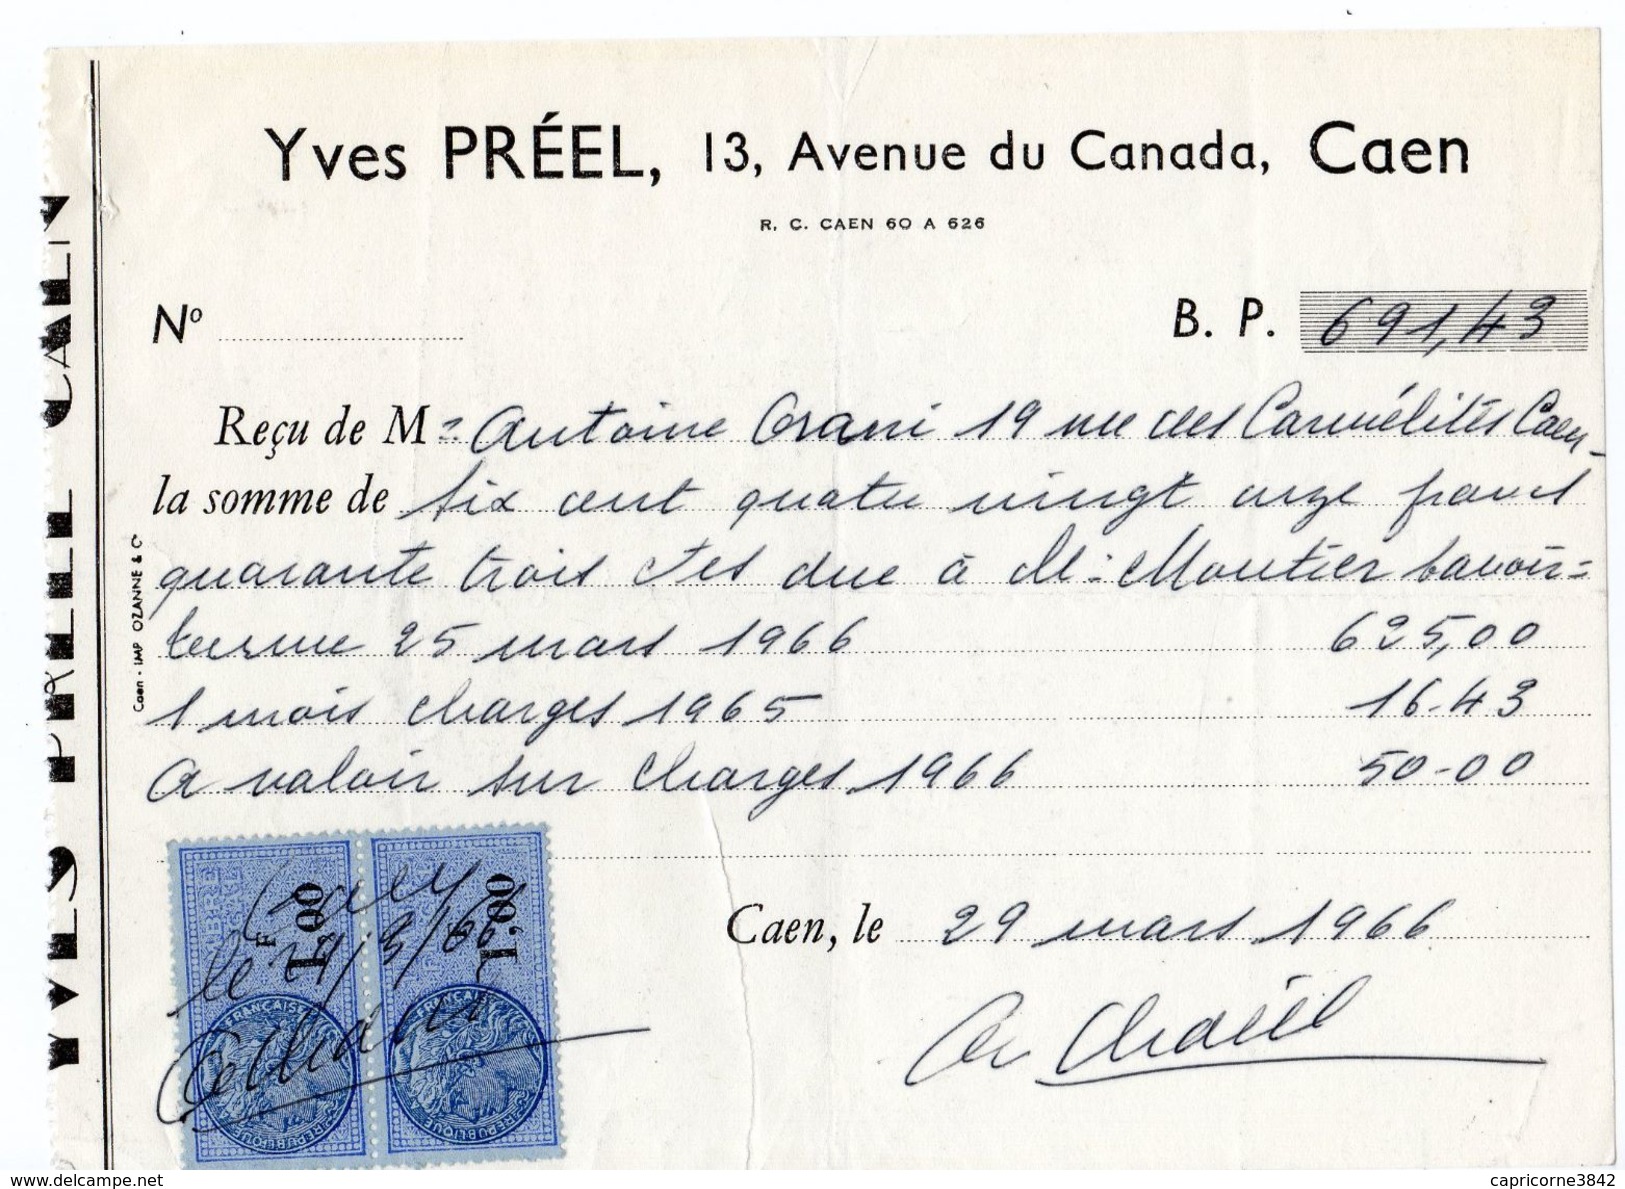 Yves PRÉEL, 13, Avenue du Canada, Caen
R. C. CAEN 60 A 626
Nº B. P. 691,43
Reçu de M = Antoine Orani 19 rue des Carmélites Caen
la somme de six cent quatre vingt onze francs
quarante trois cts due à M: Moutier savoir =
terme 25 mars 1966 625,00
1 mois charges 1965 16-43
a valoir sur charges 1966 50-00
Caen, le 29 mars 1966
YVES PRÉEL CAEN
Caen - IMP OZANNE & Cº
Caen
le 29/3/66
F 1.00 1.00
FRANÇAISE FRANÇAISE
RÉPUBLIQUE RÉPUBLIQUE
www.delcampe.net capricorne3842